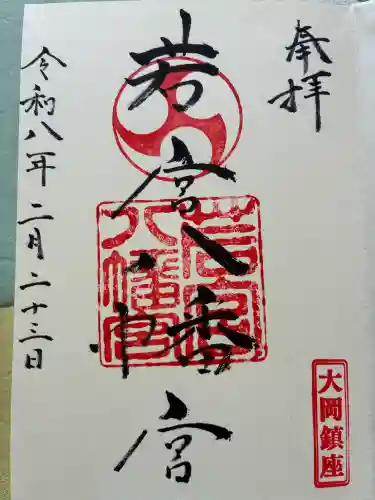 奉拝
若宮八幡宮
令和八年二月二十三日
若宮八幡宮
大岡鎮座